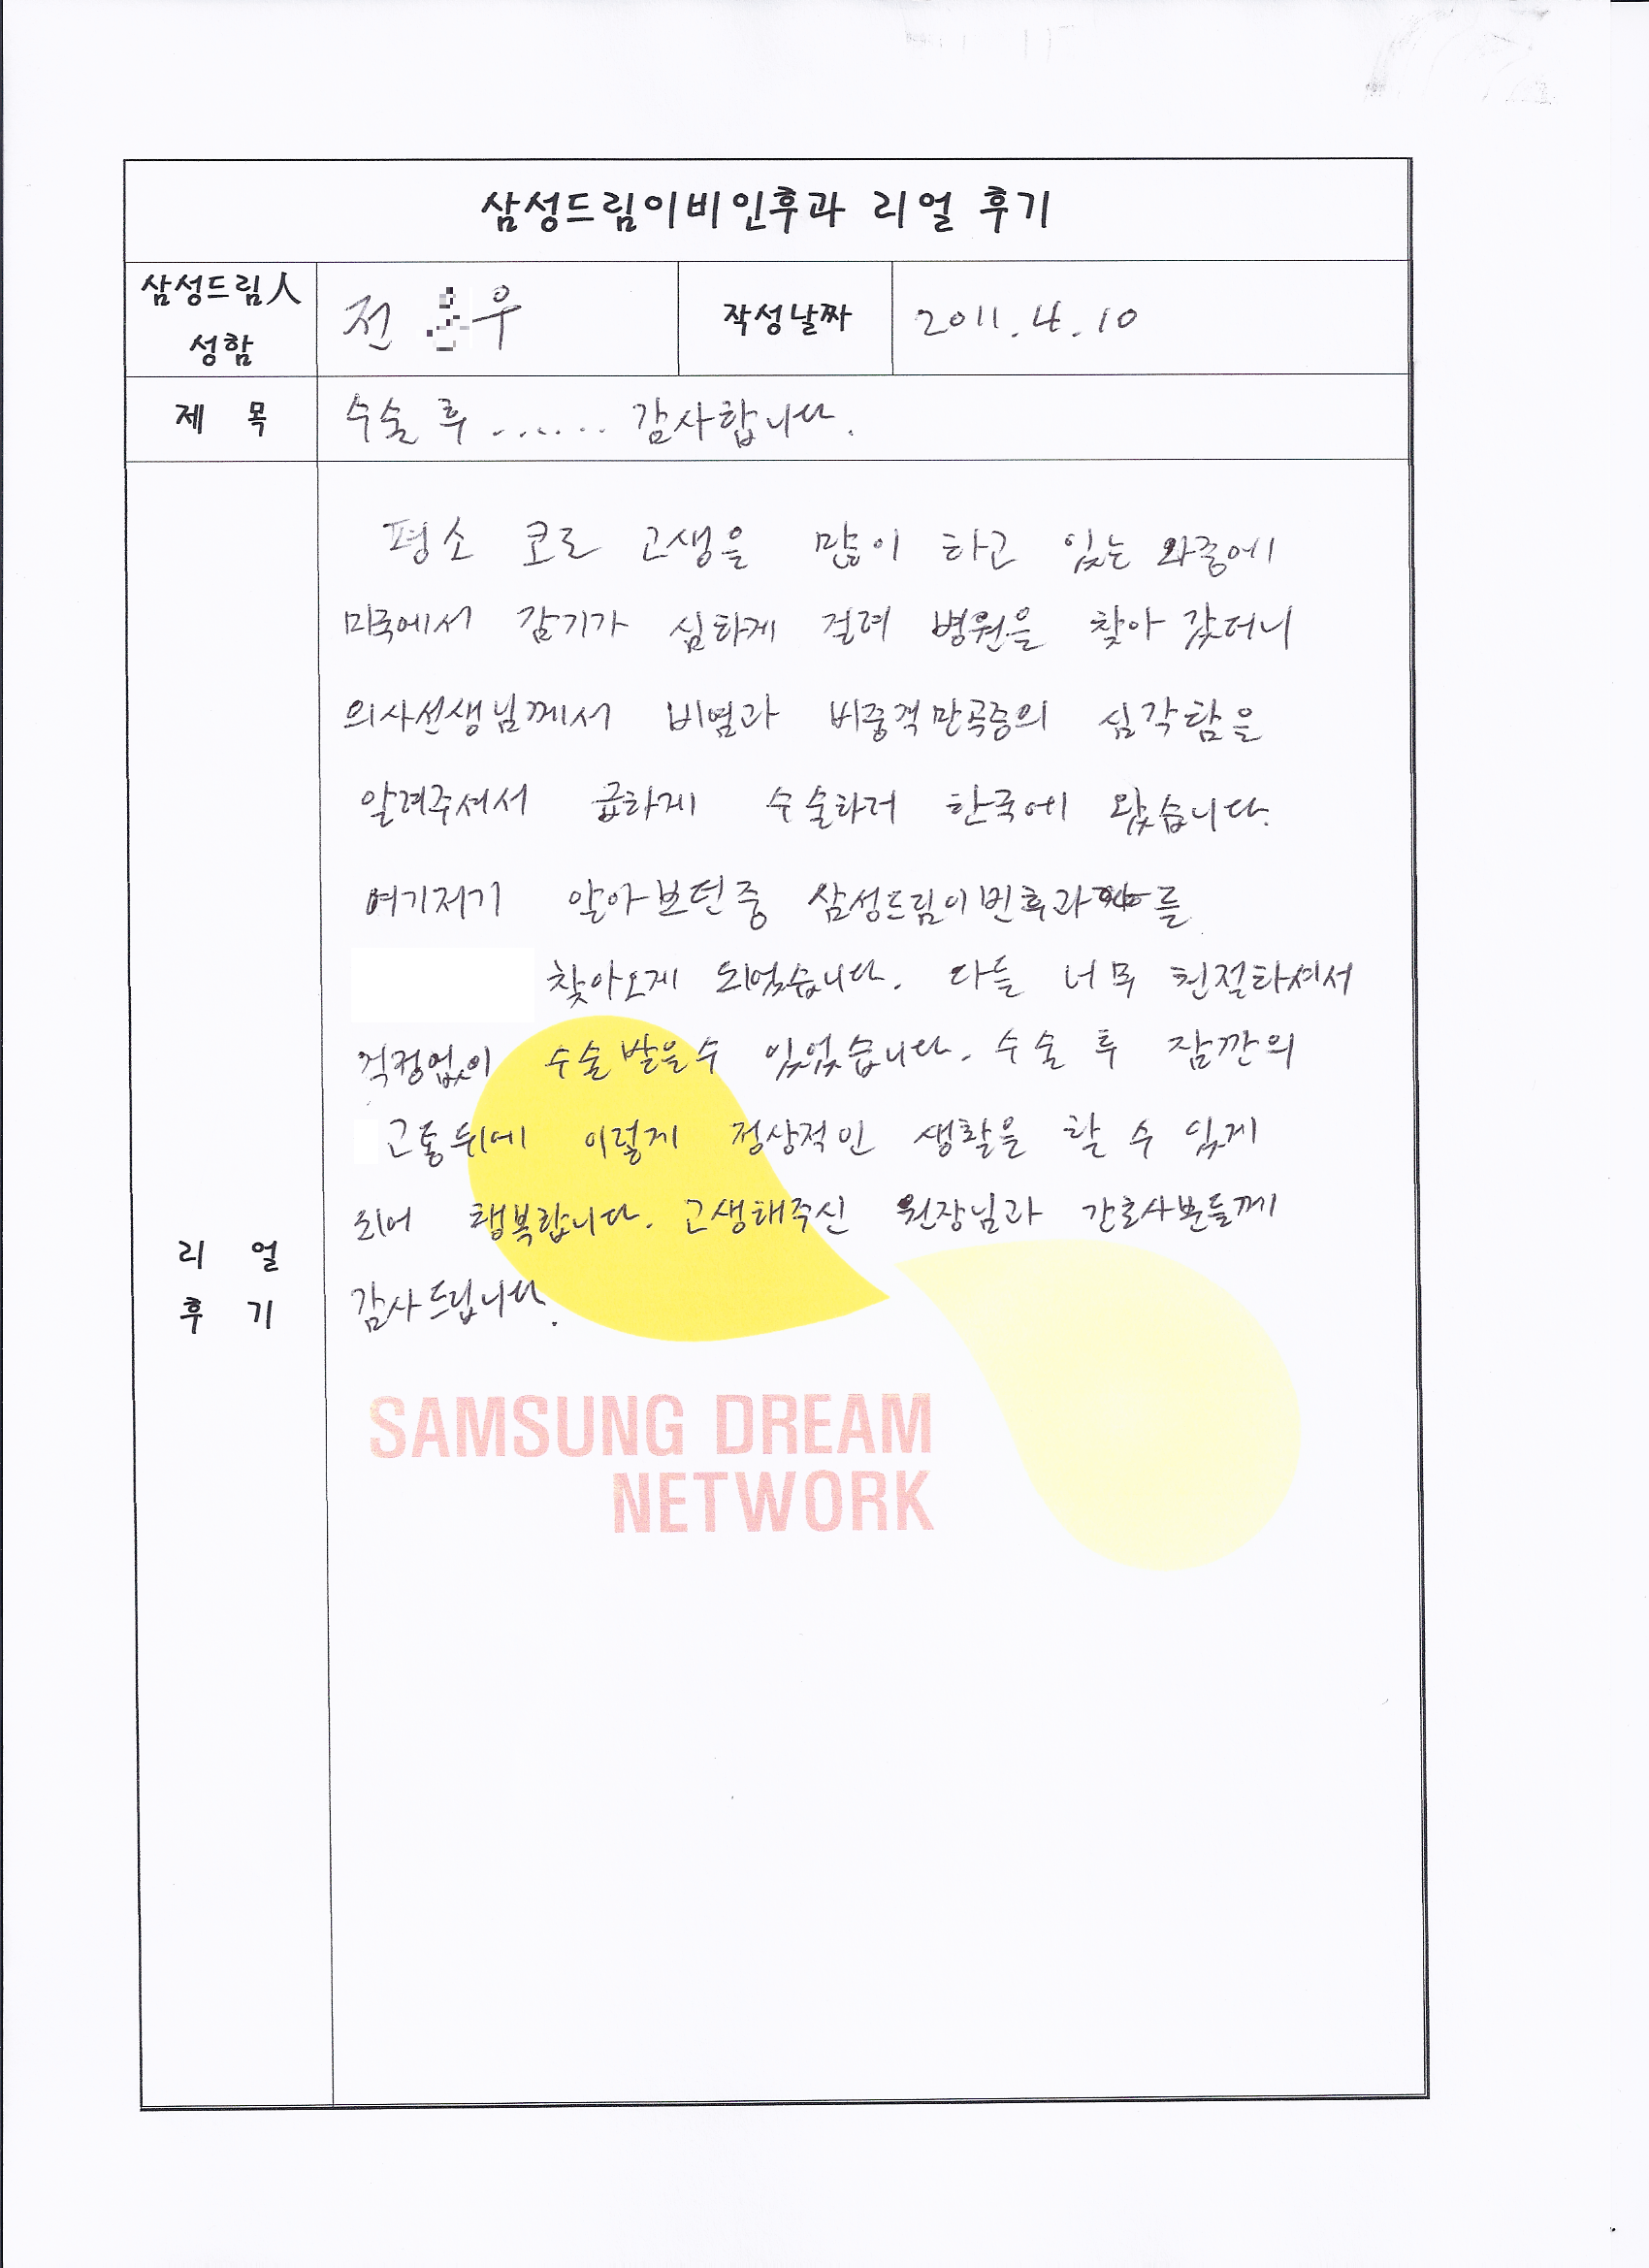 삼성드림이비인후과 리얼 후기
삼성드림人 성함
전 우
작성날짜
2011.4.10
제 목
수술 후 ....... 감사합니다.
리 얼
후 기
평소 코로 고생을 많이 하고 있는 와중에
미국에서 감기가 심하게 걸려 병원을 찾아 갔더니
의사선생님께서 비염과 비중격만곡증의 심각함을
알려주셔서 급하게 수술하러 한국에 왔습니다.
여기저기 알아보던중 삼성드림이빈후과를
찾아오게 되었습니다. 다들 너무 친절하셔서
걱정없이 수술받을수 있었습니다. 수술 후 잠깐의
고통뒤에 이렇게 정상적인 생활을 할 수 있게
되어 행복합니다. 고생해주신 원장님과 간호사분들께
감사드립니다.
SAMSUNG DREAM
NETWORK